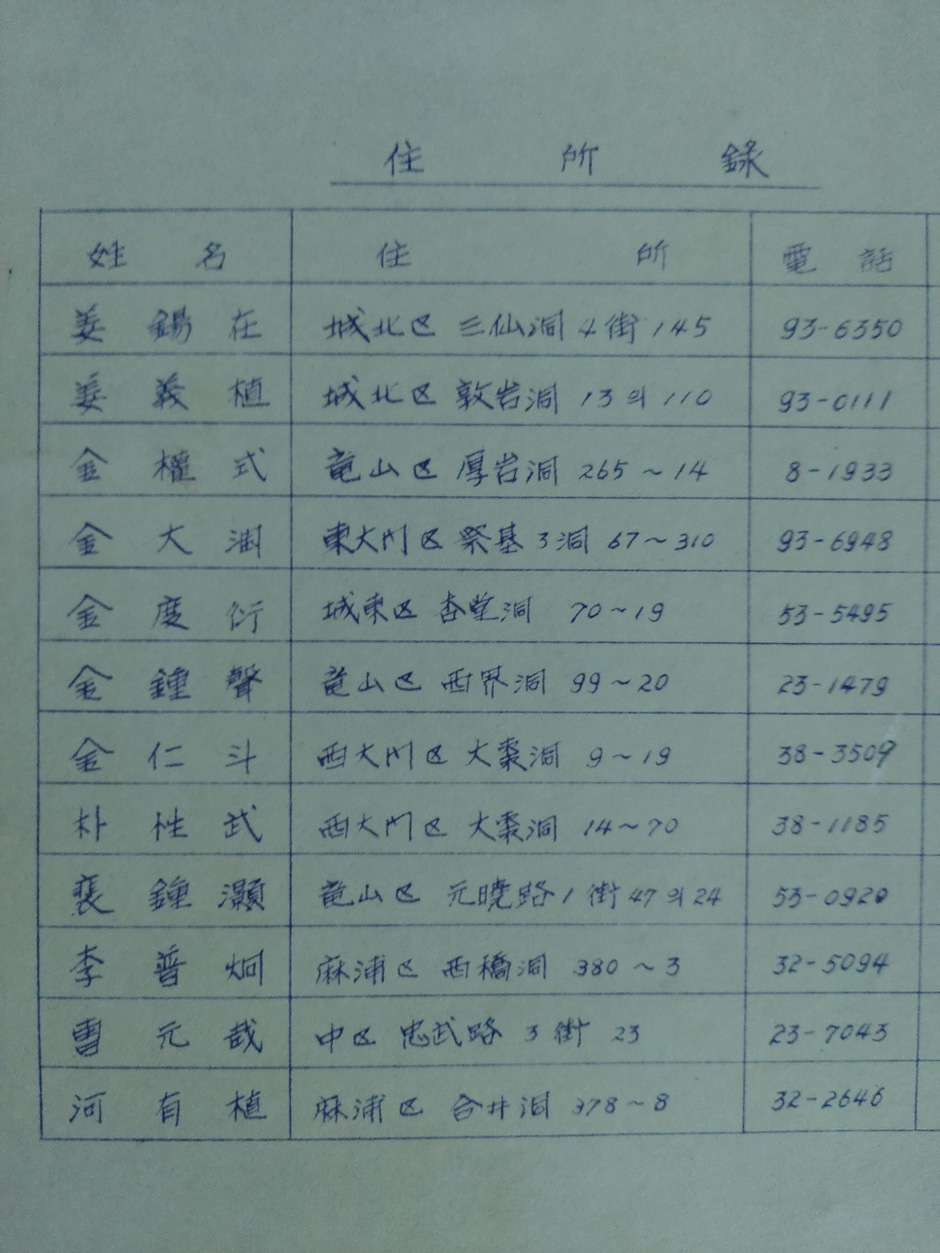 住 所 錄
姓 名 住 所 電 話
姜 錫 在 城北区 三仙洞 4街 145 93-6350
姜 義 植 城北区 敦岩洞 13의 110 93-0111
金 權 式 竜山区 厚岩洞 265~14 8-1933
金 大 東大门区 祭基 3洞 67~310 93-6948
金 度 衍 城東区 杏堂洞 70~19 53-5495
金 鍾 聲 竜山区 西界洞 99~20 23-1479
金 仁 斗 西大门区 大棗洞 9~19 38-3509
朴 性 武 西大门区 大棗洞 14~70 38-1185
裵 鍾 灝 竜山区 元曉路 1街 47의 24 53-0920
李 普 炯 麻浦区 西橋洞 380~3 32-5094
曺 元 哉 中区 忠武路 3街 23 23-7043
河 有 植 麻浦区 合井洞 378~8 32-2646